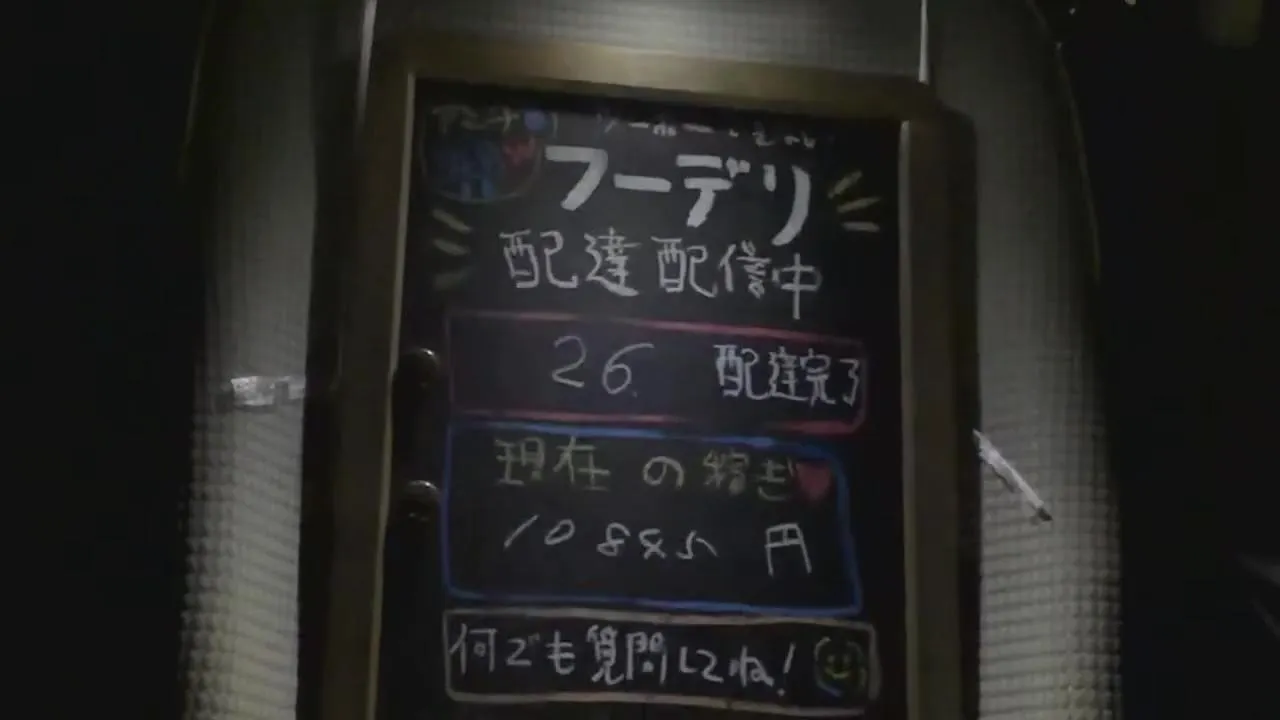 フーデリ
配達配信中
26 配達完了
現在の稼ぎ
円
何でも質問してね!